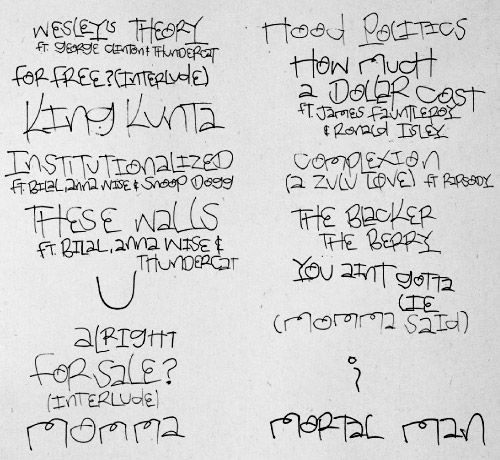 WESLEY'S THEORY
ft GEORGE CLINTON & THUNDERCAT
FOR FREE? (INTERLUDE)
KING KUNTA
INSTITUTIONALIZED
ft. BILAL, ANNA WISE & SNOOP DOGG
THESE WALLS
ft. BILAL, ANNA WISE &
THUNDERCAT
U
ALRIGHT
FOR SALE?
(INTERLUDE)
MOMMA
HOOD POLITICS
HOW MUCH
A DOLLAR COST
ft JAMES FAUNTLEROY
& RONALD ISLEY
COMPLEXION
(A ZULU LOVE) ft RAPSODY
THE BLACKER
THE BERRY
YOU AINT GOTTA
LIE
(MOMMA SAID)
i
MORTAL MAN